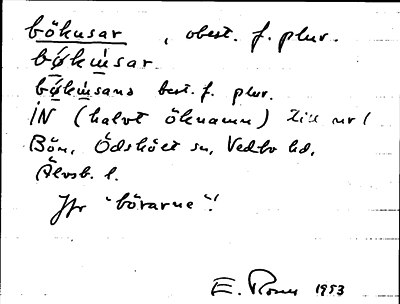 bökusar, obest. f. plur.
bøkusar
bøkusana best. f. plur.
IN (halvt öknamn) till nr 1
Bön, Ödskölt sn, Vedbo hd,
Älvsb. l.
Jfr "börarne"!
E. 1953